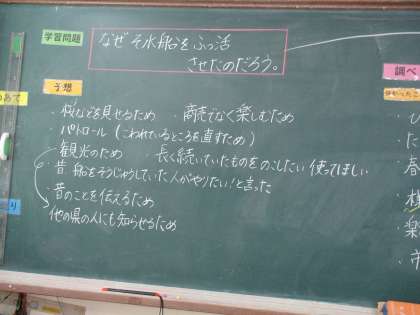 学習問題
なぜ そ水船をふっ活
させたのだろう。
予想
・桜などを見せるため ・商売でなく楽しむため
・パトロール(こわれているところを直すため)
・観光のため ・長く続いていたものをのこしたい 使ってほしい
・昔、船をそうじゅうしていた人がやりたい!と言った
・昔のことを伝えるため
他の県の人にも知らせるため
調べ
分かったこ
・ひ
・に
・春
・楽
・市